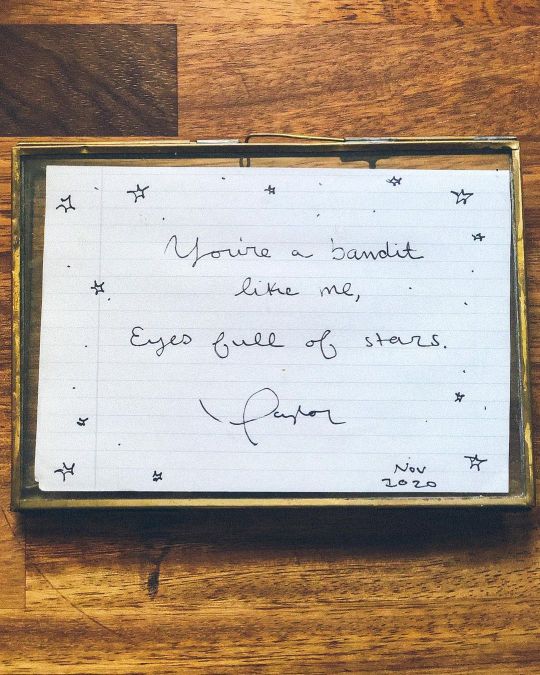 You're a bandit
like me,
Eyes full of stars.
Taylor
Nov
2020